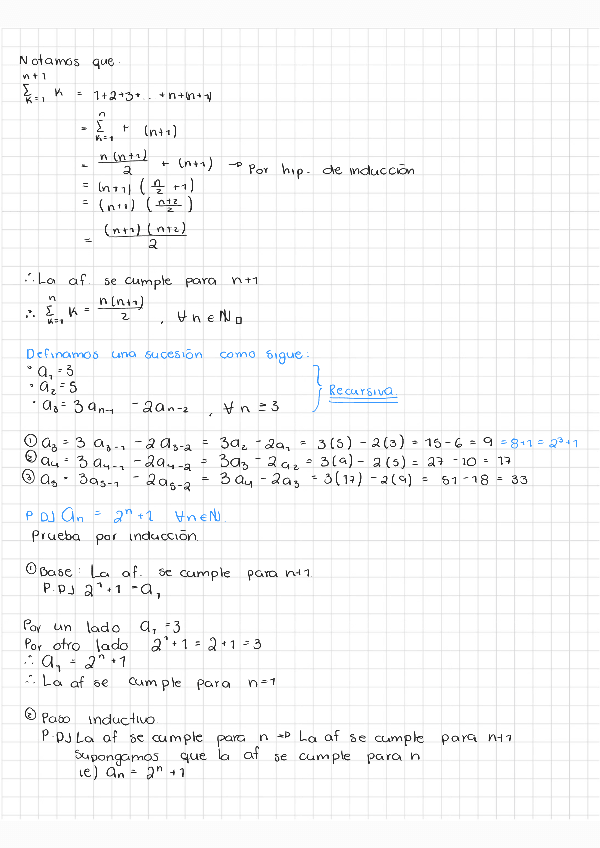 Notamos que.
n+1
Σ K = 1+2+3+ . . +n+(n+1)
K=1
n
= Σ + (n+1)
K=1
= n(n+1)/2 + (n+1) → Por hip. de inducción
= (n+1) (n/2 +1)
= (n+1) (n+2/2)
= (n+1)(n+2)/2
∴ La af. se cumple para n+1
n
∴ Σ K = n(n+1)/2 , ∀ n ∈ ℕ □
K=1
Definamos una sucesión como sigue:
• a₁ = 3
• a₂ = 5
• a₃ = 3aₙ₋₁ - 2aₙ₋₂ , ∀ n ≥ 3
Recursiva.
① a₃ = 3 a₃₋₁ - 2 a₃₋₂ = 3a₂ - 2a₁ = 3(5) - 2(3) = 15 - 6 = 9 = 8+1 = 2³+1
② a₄ = 3 a₄₋₁ - 2a₄₋₂ = 3a₃ - 2a₂ = 3(9) - 2(5) = 27 - 10 = 17
③ a₅ = 3a₅₋₁ - 2a₅₋₂ = 3a₄ - 2a₃ = 3(17) - 2(9) = 51 - 18 = 33
P.D) aₙ = 2ⁿ+1 ∀n∈ℕ.
Prueba por inducción.
① Base: La af. se cumple para n+1
P.D) 2¹+1 = a₁
Por un lado a₁ = 3
Por otro lado 2¹+1 = 2+1 = 3
∴ a₁ = 2ⁿ+1
∴ La af se cumple para n=1
② Paso inductivo
P.D) La af se cumple para n → La af se cumple para n+1
Supongamos que la af se cumple para n
ie) aₙ = 2ⁿ+1